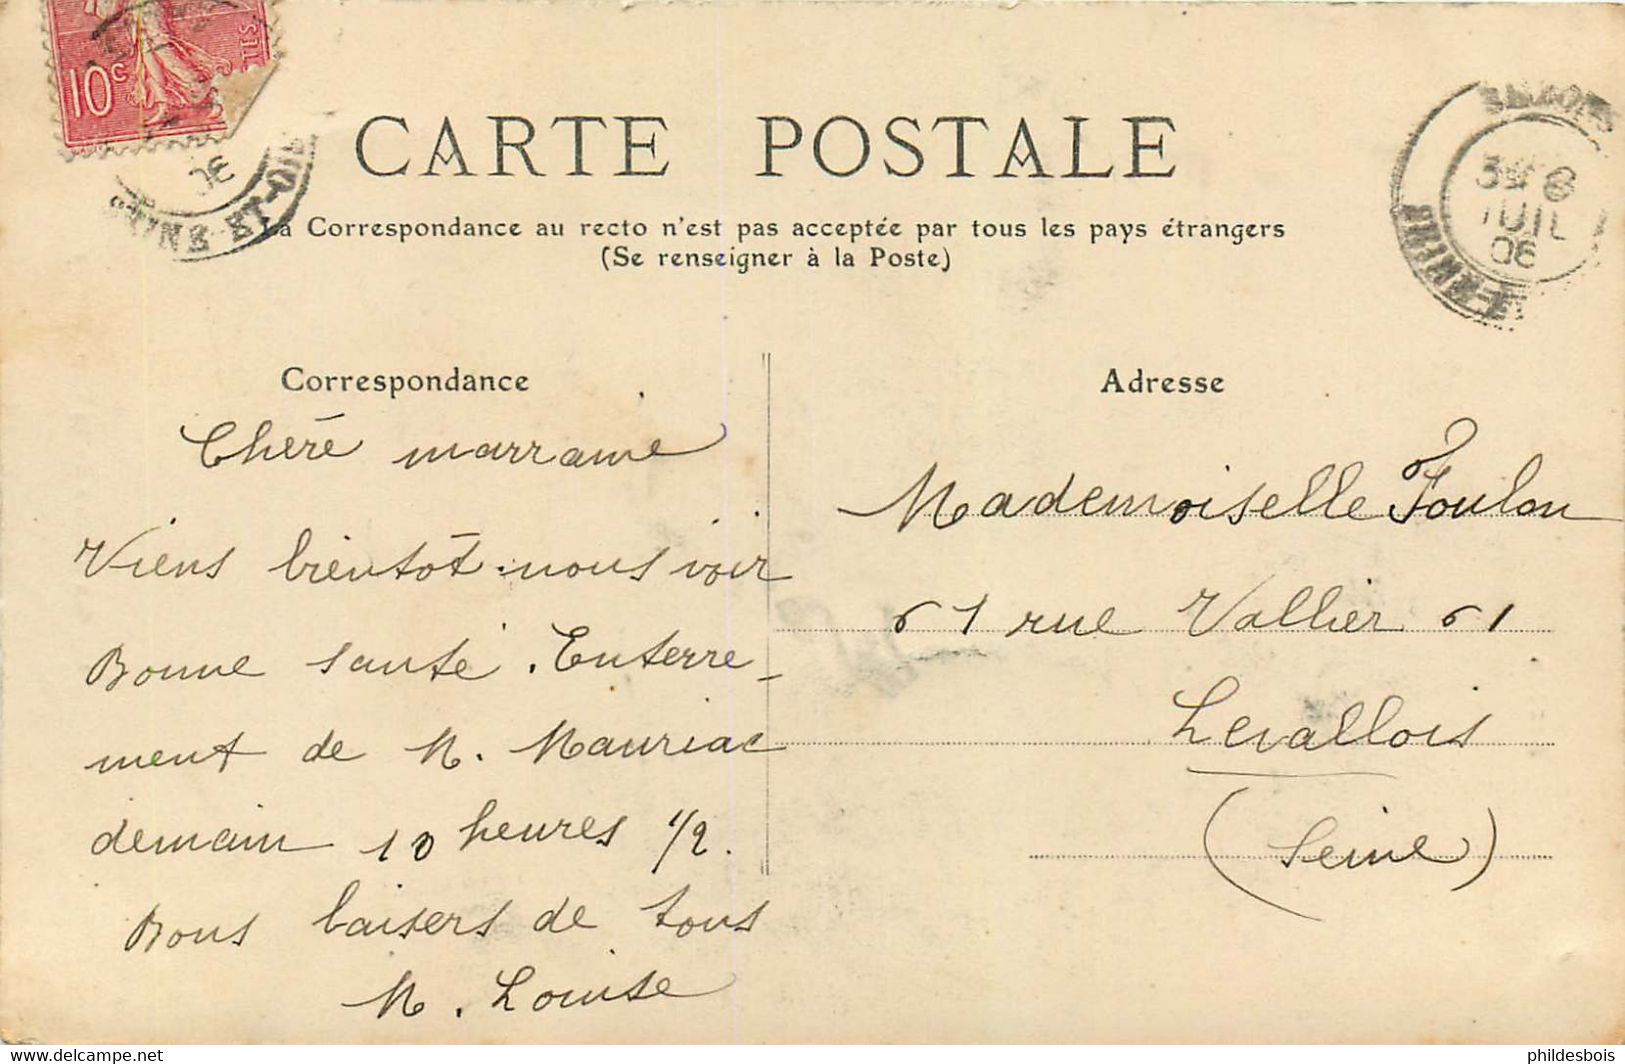 10c
TES
06
SEINE-ET-OI
CARTE POSTALE
La Correspondance au recto n'est pas acceptée par tous les pays étrangers
(Se renseigner à la Poste)
3E
JUIL
06
Correspondance
Chère marraine
Viens bientôt nous voir
Bonne santé. Enterre-
ment de M. Mauriac
demain 10 heures 1/2.
Bons baisers de tous
M. Louise
Adresse
Mademoiselle Foulon
61 rue Vallier 61
Levallois
(Seine)
phildesbois